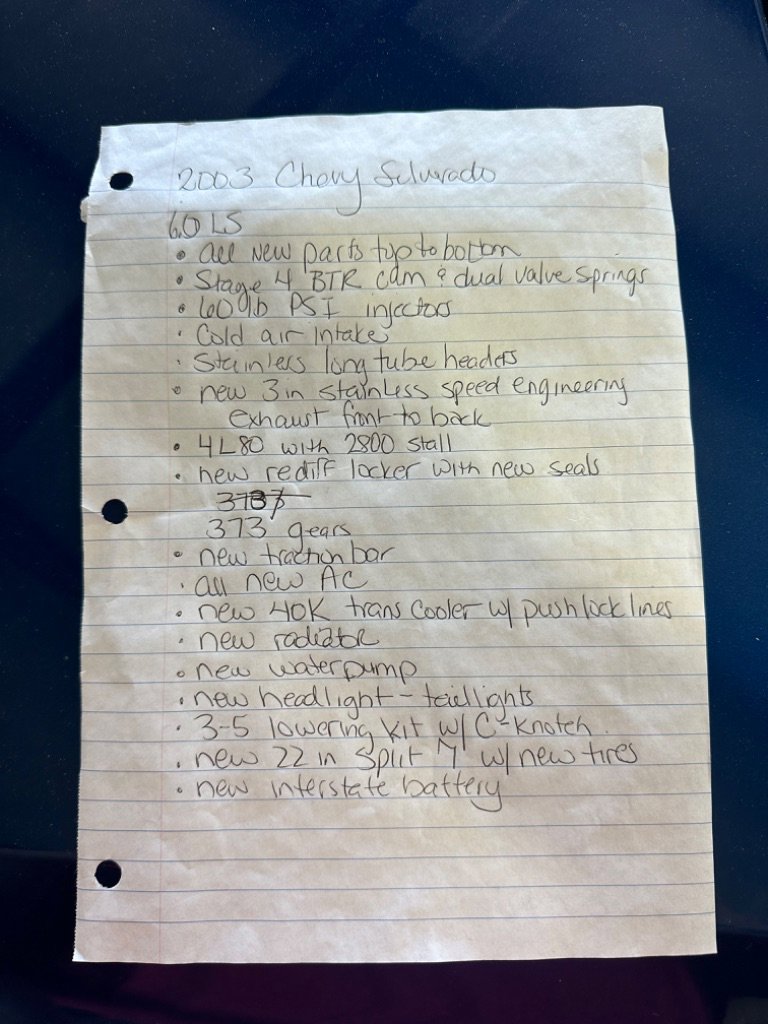 2003 Chevy Silverado
6.0 LS
• all new parts top to bottom
• Stage 4 BTR cam & dual valve springs
• 60 lb PSI injectors
• Cold air intake
• Stainless long tube headers
• new 3 in stainless speed engineering
exhaust front to back
• 4L80 with 2800 stall
• new rediff locker with new seals
373 gears
• new traction bar
• all new AC
• new 40K trans cooler w/ push lock lines
• new radiator
• new waterpump
• new headlight - taillights
• 3-5 lowering kit w/ C-knotch.
• new 22 in Split 7 w/ new tires
• new interstate battery